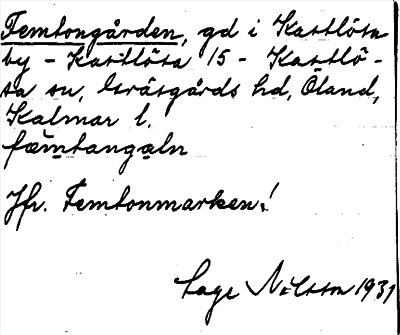 Femtongården, gd i Kastlösa
by - Kastlösa 15 - Kastlö-
sa sn, Gräsgårds hd, Öland,
Kalmar l.
fæmtangaln
Jfr. Femtonmarken!
Lage Nilsson 1931